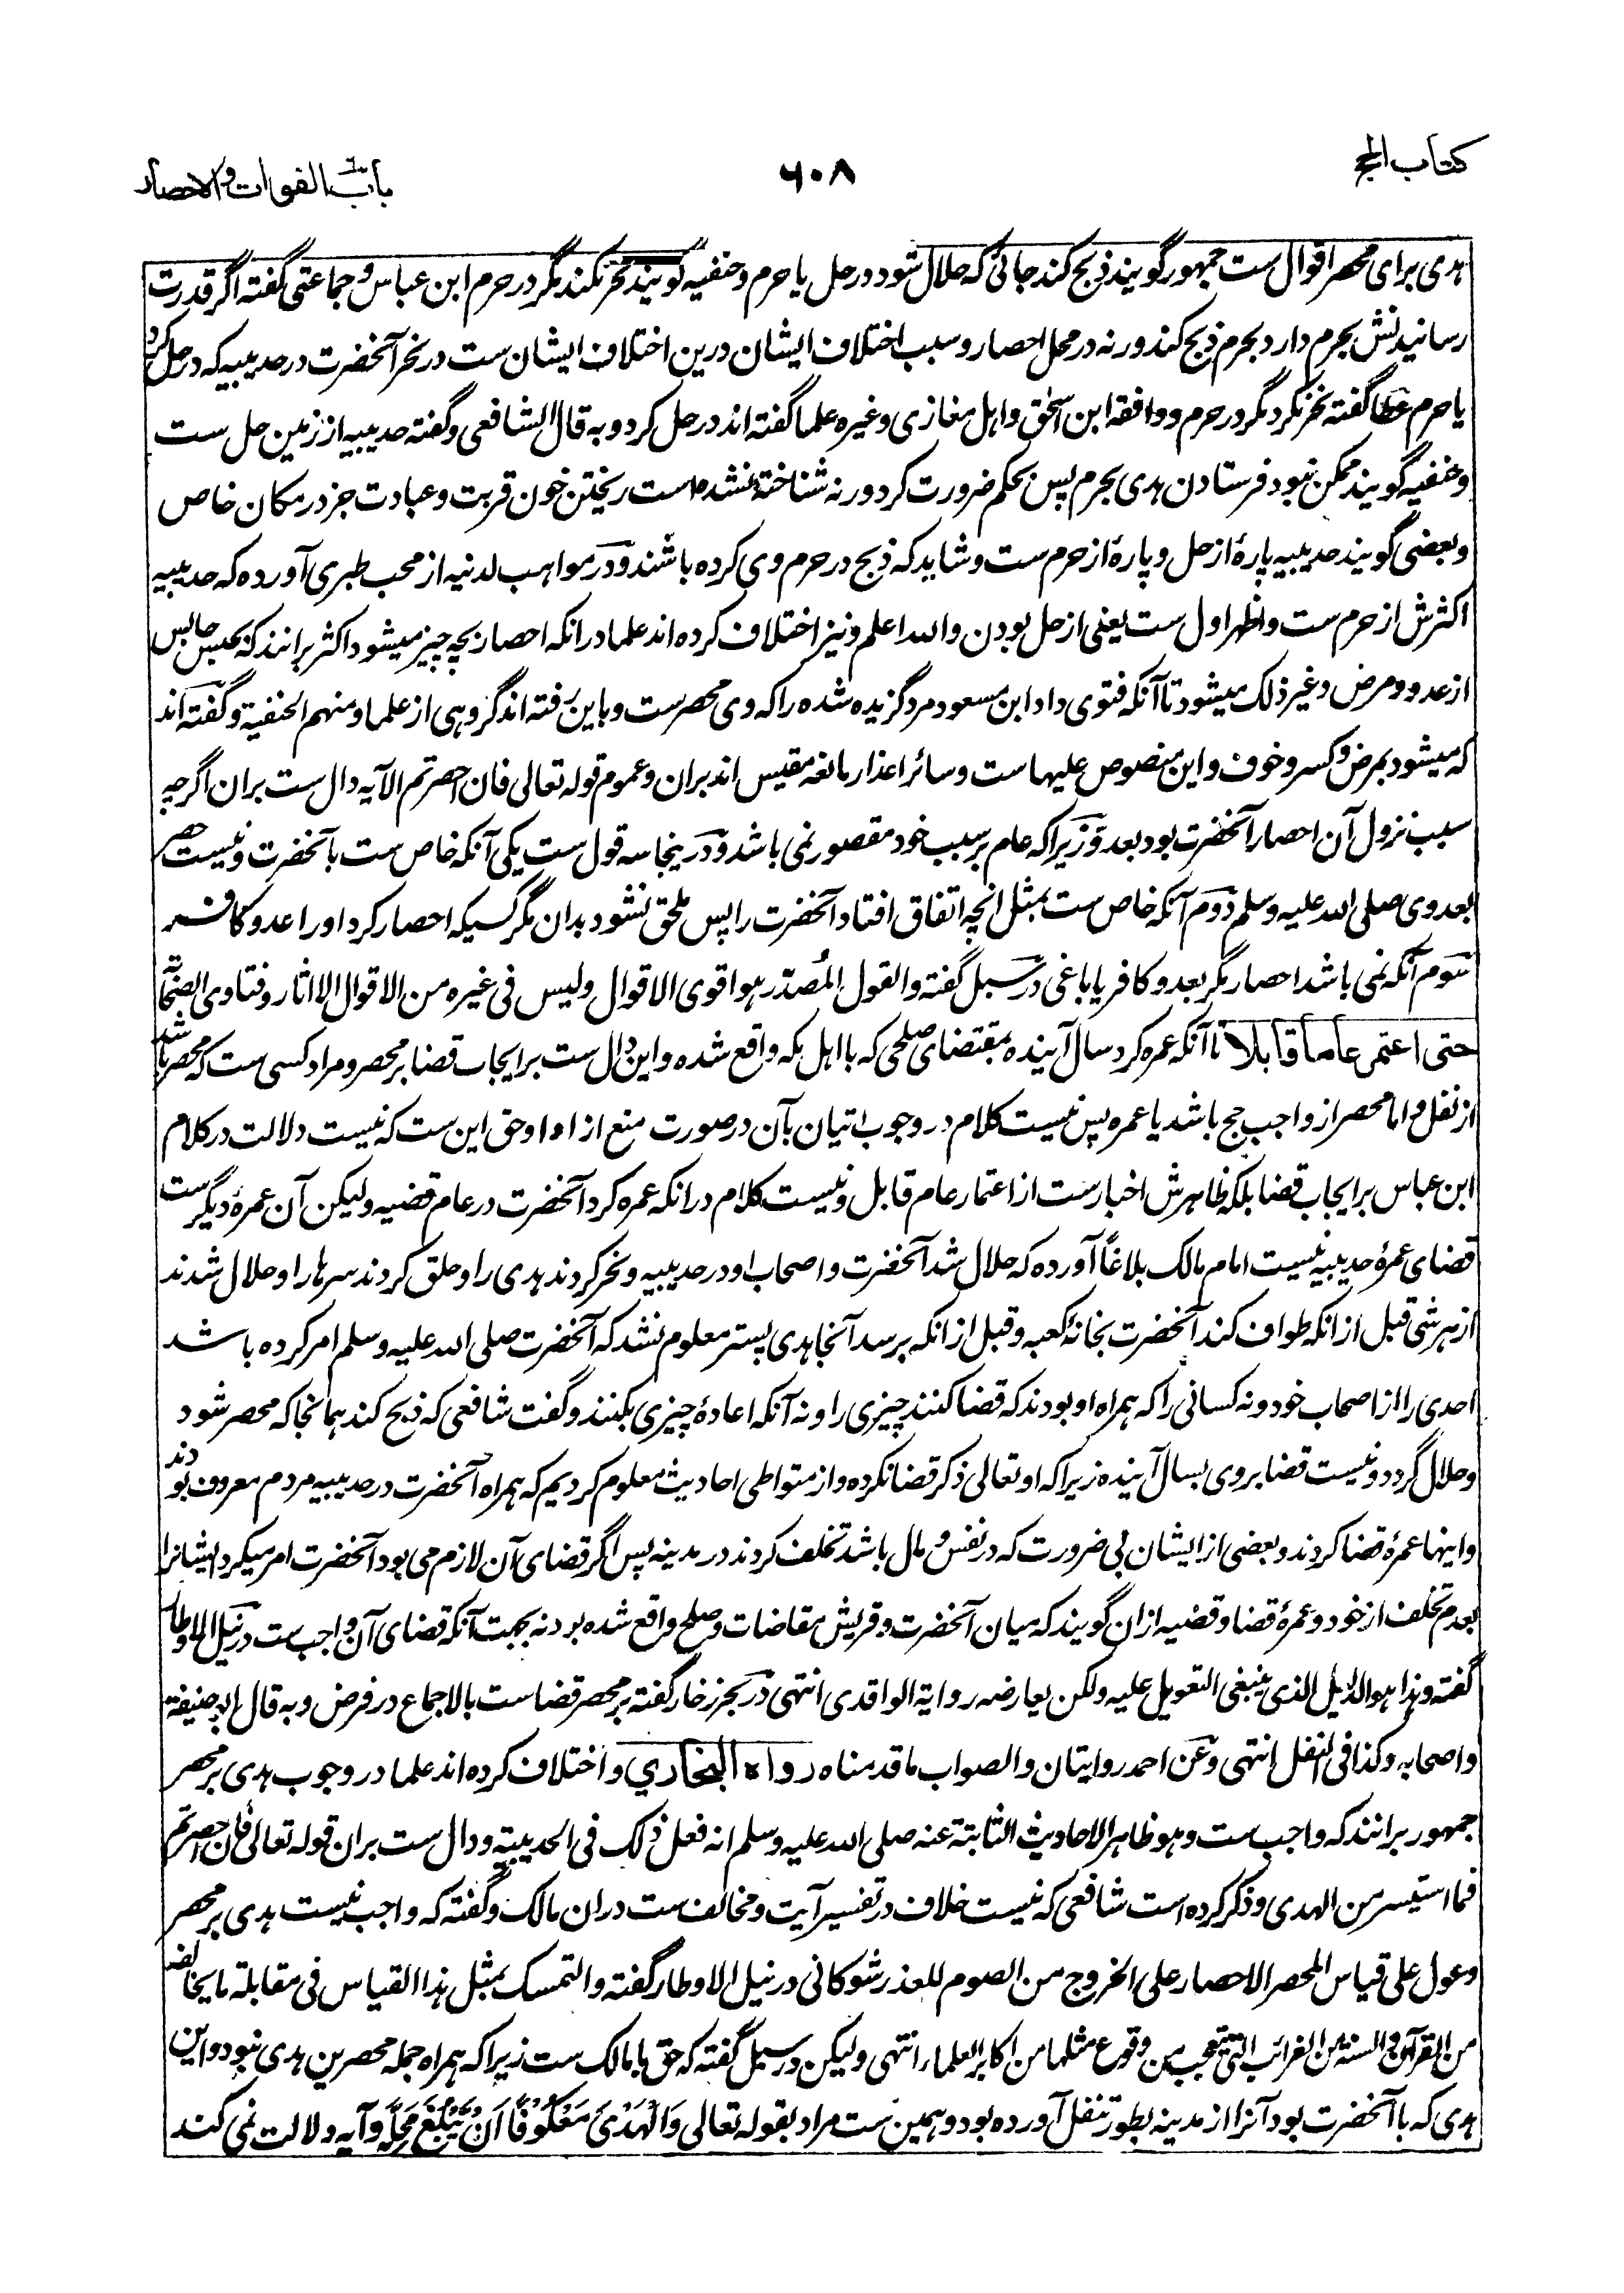 کتاب الحج
۶۰۸
باب الفوات والاحصار
ہدی برای محصر اقوال ست جمهور گویند ذبح کند جائی که حلال شود در حل یا حرم و حنفیه گویند نحر نکند مگر در حرم ابن عباس و جماعتی گفته اگر قدرت
رسانیدنش بحرم دارد بحرم ذبح کند ورنه در محل احصار و سبب اختلاف ایشان درین اختلاف ایشان ست در نحر آنحضرت در حدیبیه که در حل کرد
یا حرم عطا گفته نحر نکرد مگر در حرم و وافقه ابن اسحٰق و اہل مغازی و غیره علما گفته اند در حل کرد و به قال الشافعی و گفته حدیبیه از زمین حل ست
و حنفیه گویند ممکن نبود فرستادن ہدی بحرم پس بحکم ضرورت کرد ورنه شناخته نشده است ریختن خون قربت و عبادت جز در مکان خاص
و بعضی گویند حدیبیه پارهٔ از حل و پارهٔ از حرم ست و شاید که ذبح در حرم وی کرده باشند و در مواہب لدنیه از محب طبری آورده که حدیبیه
اکثرش از حرم ست و اظهر اول ست یعنی از حل بودن والله اعلم و نیز اختلاف کرده اند علما درانکه احصار بچه چیز میشود اکثر برانند که بحبس حابس
از عدو و مرض و غیر ذلک میشود تا آنکه فتوی داد ابن مسعود مرد گزیده شده را که وی محصرست و باین رفته اند گروہی از علما و منهم الحنفیة و گفته اند
که میشود بمرض و کسر و خوف و این منصوص علیها ست و سائر اعذار مانعه مقیس اند بران و عموم قوله تعالی فان احصرتم الآیه دال ست بران اگرچه
سبب نزول آن احصار آنحضرت بود بعدو زیراکه عام بر سبب خود مقصور نمی باشد و درینجا سه قول ست یکی آنکه خاص ست بآنحضرت و نیست حصر
بعد وی صلی الله علیه وسلم دوم آنکه خاص ست بمثل انچه اتفاق افتاد آنحضرت را پس ملحق نشود بدان مگر کسیکه احصار کرد او را عدو کافر
سوم آنکه نمی باشد احصار مگر بعدو کافر یا باغی در سبل گفته والقول المُصدّر ہو اقوی الاقوال ولیس فی غیره من الاقوال الا اثار و فتاوی الصحابة
حتی اعتمر عاما قابلا تا آنکه عمره کرد سال آینده بمقتضای صلحی که با اہل مکه واقع شده و این دال ست بر ایجاب قضا بر محصر و مراد کسی ست که محصر باشد
از نفل و اما محصر از واجب حج باشد یا عمره پس نیست کلام در وجوب اتیان بآن در صورت منع از ادا و حق این ست که نیست دلالت در کلام
ابن عباس بر ایجاب قضا بلکه ظاہرش اخبارست از اعتمار عام قابل و نیست کلام درانکه عمره کرد آنحضرت در عام قضیه ولیکن آن عمرهٔ دیگرست
قضای عمرهٔ حدیبیه نیست امام مالک بلاغاً آورده که حلال شد آنحضرت و اصحاب او در حدیبیه و نحر کردند ہدی را و حلق کردند سرہا را و حلال شدند
از ہر شی قبل ازانکه طواف کند آنحضرت بخانهٔ کعبه و قبل ازانکه برسد آنجا ہدی پستر معلوم نشد که آنحضرت صلی الله علیه وسلم امر کرده باشد
احدی را از اصحاب خود و نه کسانی را که ہمراه او بودند که قضا کنند چیزی را و نه آنکه اعادهٔ چیزی بکنند و گفت شافعی که ذبح کند ہمانجا که محصر شود
و حلال گردد و نیست قضا بر وی بسال آینده زیراکه او تعالی ذکر قضا نکرده و از متواطی احادیث معلوم کردیم که ہمراه آنحضرت در حدیبیه مردم معروف بودند
و اینها عمرهٔ قضا کردند و بعضی از ایشان بی ضرورت که در نفس و مال باشد تخلف کردند در مدینه پس اگر قضای آن لازم می بود آنحضرت امر میکرد ایشانرا
بعدم تخلف از خود و عمرهٔ قضا و قضیه ازان گویند که میان آنحضرت و قریش مقاضات و صلح واقع شده بود نه بجهت آنکه قضای آن واجب ست در نیل الاوطار
گفته وہذا ہو الدلیل الذی ینبغی التعویل علیه ولکن یعارضه روایة الواقدی انتهی در بحر زخار گفته بر محصر قضا ست بالاجماع در فرض و به قال ابو حنیفة
و اصحابه و کذا فی النفل انتهی و عن احمد روایتان والصواب ما قدمناه رواه البخاري و اختلاف کرده اند علما در وجوب ہدی بر محصر
جمهور برانند که واجب ست و ہو ظاہر الاحادیث الثابتة عنه صلی الله علیه وسلم انه فعل ذلک فی الحدیبیة و دال ست بران قوله تعالی فان احصرتم
فما استیسر من الهدی و ذکر کرده است شافعی که نیست خلاف در تفسیر آیت و مخالف ست دران مالک و گفته که واجب نیست ہدی بر محصر
وعول علی قیاس المحصر الاحصار علی الخروج من الصوم للعذر شوکانی در نیل الاوطار گفته والتمسک بمثل ہذا القیاس فی مقابلة ما یخالفه
من القرآن والسنة من الغرائب التی یتعجب من وقوع مثلها من اکابر العلماء انتهی ولیکن در سبل گفته که حق با مالک ست زیراکه ہمراه جمله محصرین ہدی نبود و این
ہدی که با آنحضرت بود آنرا از مدینه بطور تنفل آورده بود و ہمین ست مراد بقوله تعالی وَالْهَدْیَ مَعْکُوْفًا اَنْ یَّبْلُغَ مَحِلَّهٗ و آیه دلالت نمی کند